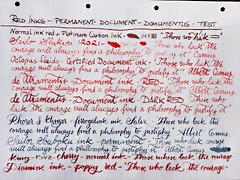 RED INKS - PERMANENT - DOCUMENT - DOKUMENTUS - TEST
Normal ink red + Platinum Carbon Ink - "Those who lack
Sailor Shikiori 2021 - Those who lack the
courage will always find a philosophy to
Octopus Fluids - Certified Document ink - Those who lack the
courage will always find a philosophy to justify it" Albert Camus.
De Atramentis - Document ink - Those who lack the
courage will always find a philosophy to justify it" Albert Camus
De Atramentis - Document ink - DARK RED - Those who lack the
courage will always find a philosophy to justify it" Albert Camus
Those who lack the
courage will always find a philosophy to justify" Albert Camus.
Sailor Souboku ink - permanent - Those who lack the
courage will always find a philosophy to justify it" Albert Camus
cherry - normal ink - Those whose lack the courage
Diamine ink - poppy red - Those who lack the courage -